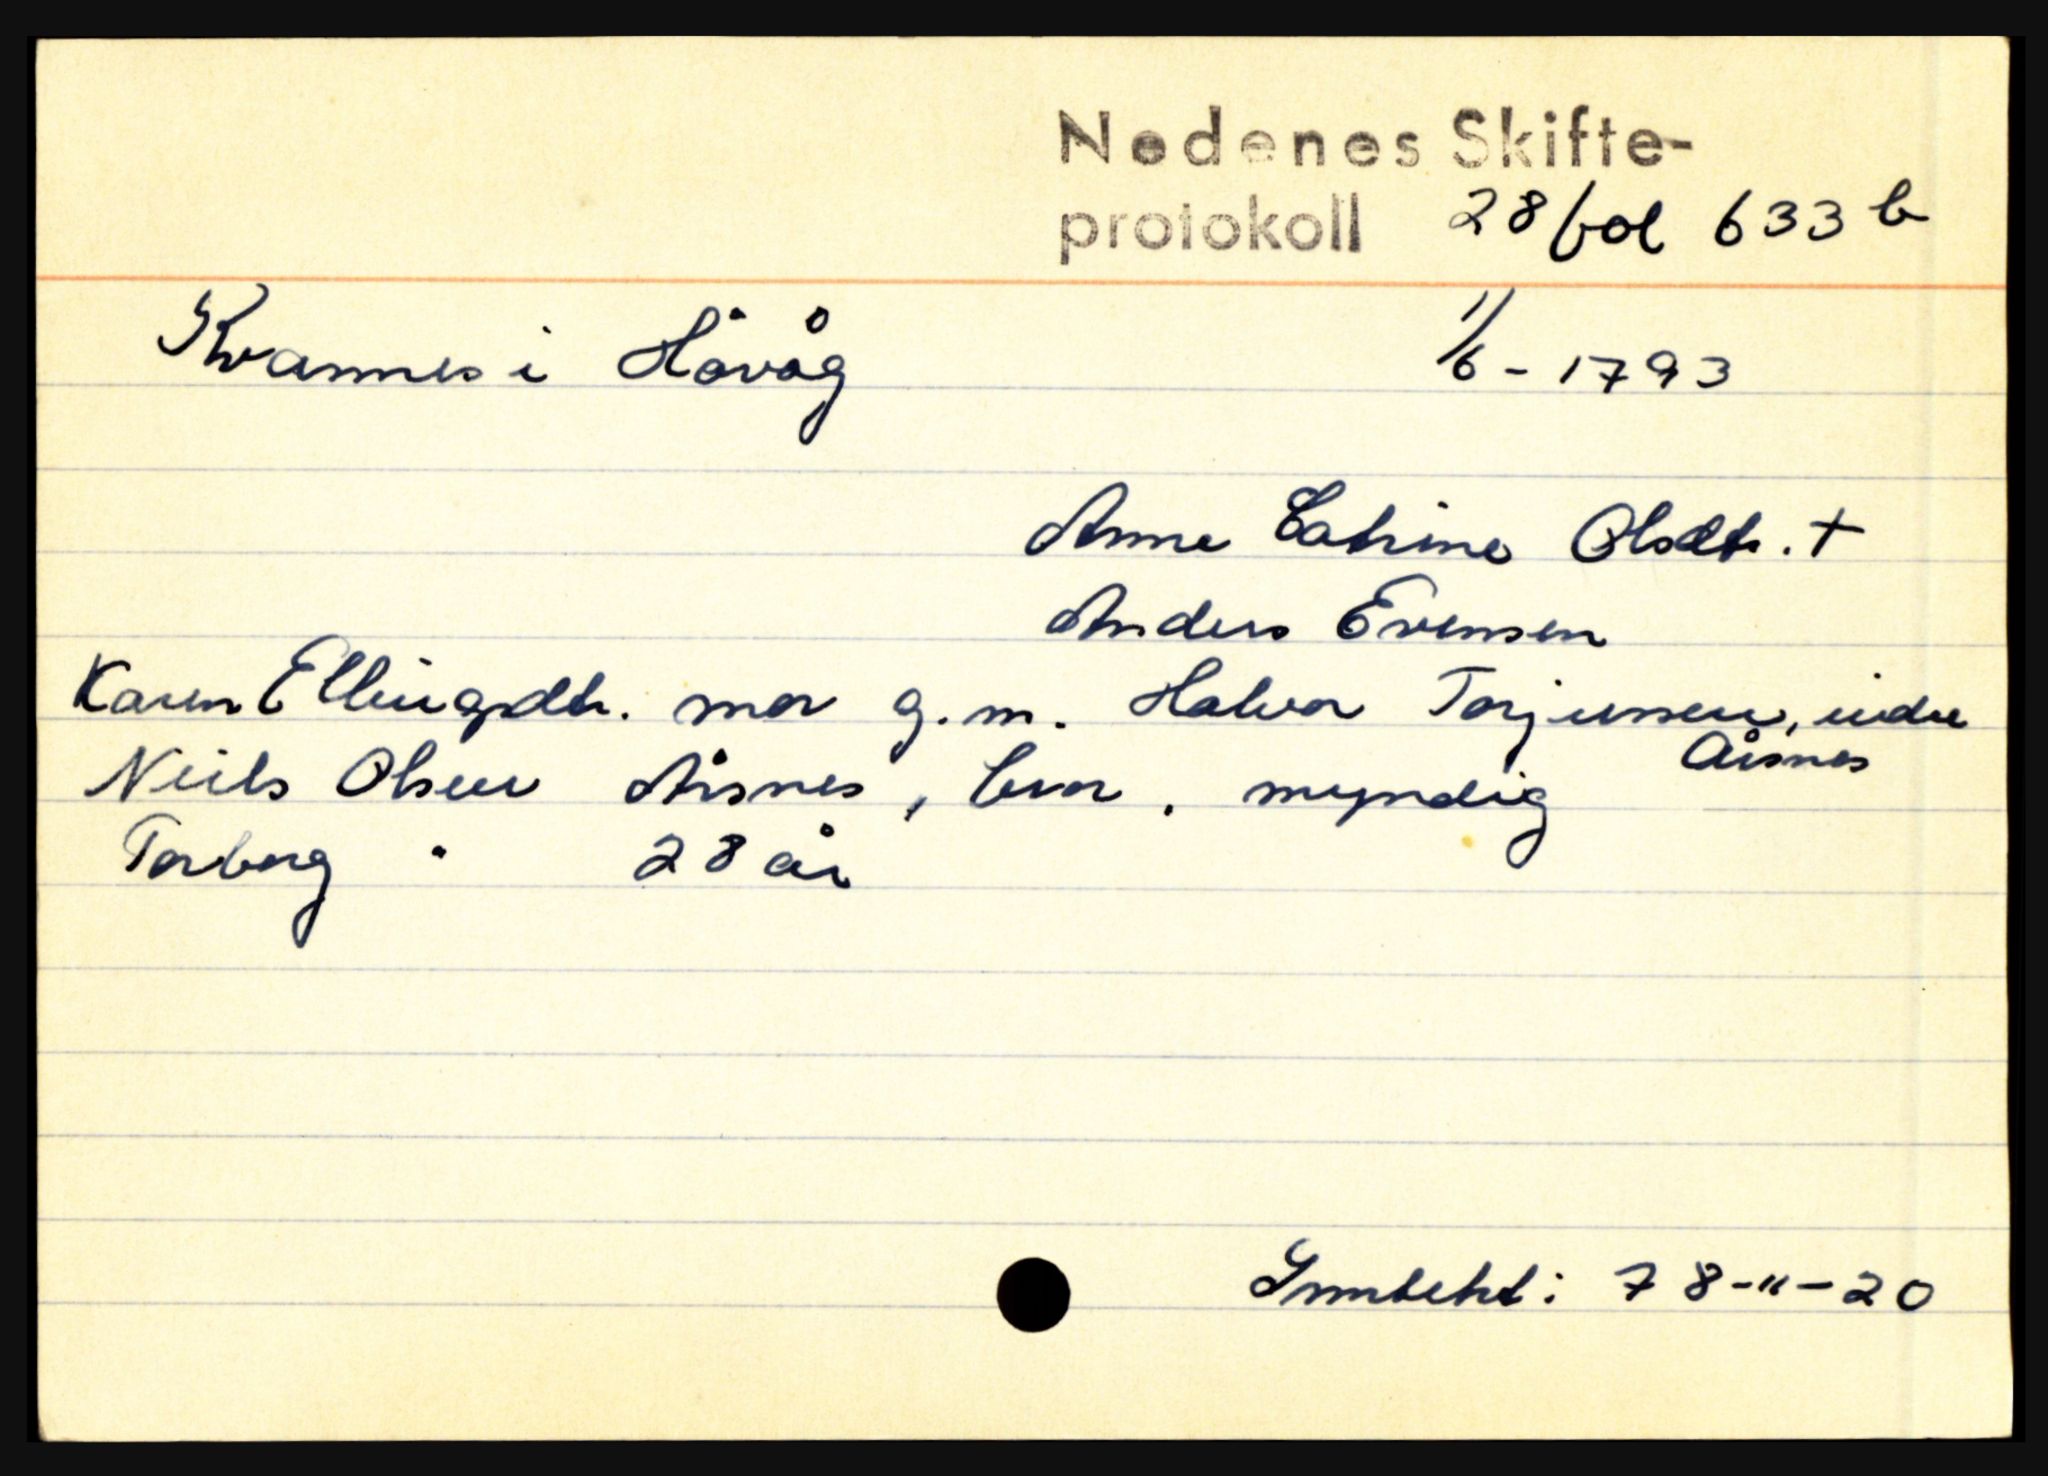 Nedenes Skifte-
protokoll 28 fol 633 b
Kvannes i Høvåg 1/6 - 1793
Anne Catrine Olsdtr. +
Anders Evensen
Karen Ellingsdtr. mor g.m. Halvor Torjussen, indre
Årsnes
Neils Olsen Årsnes, bror, myndig
Torborg " 28 år
Inntekt: 78-"-20